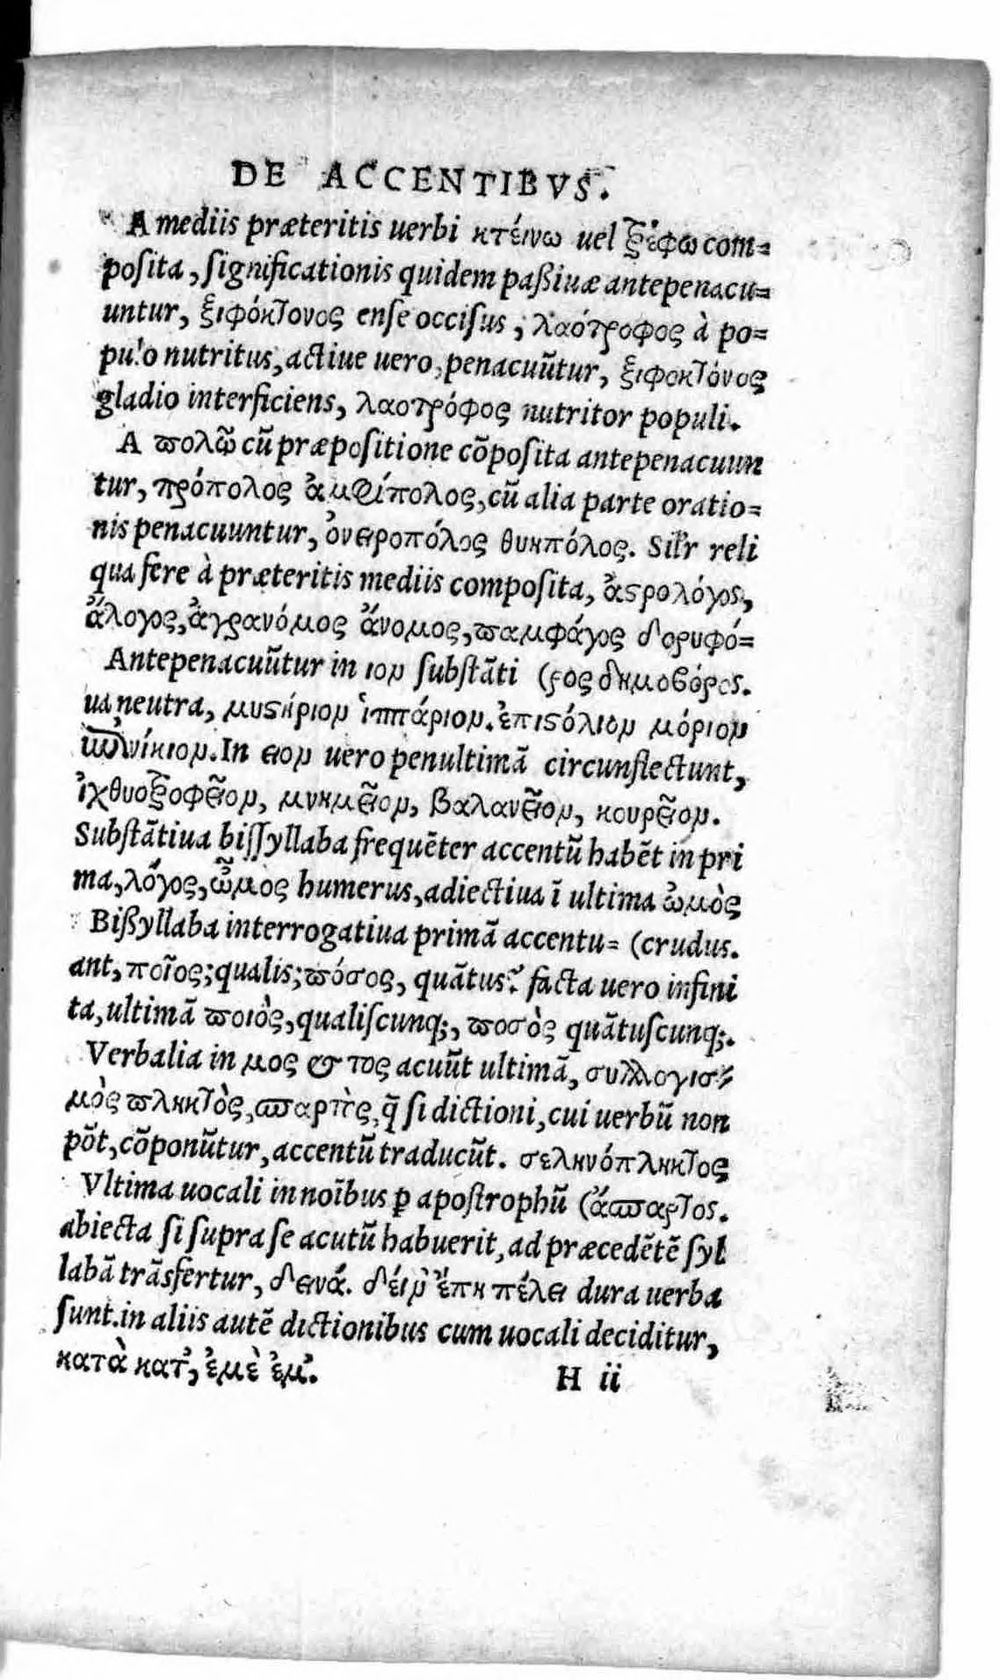 DE ACCENTIBVS.
A mediis præteritis uerbi κτείνω uel τρέφω com=
posita, significationis quidem paßiuæ antepenacu=
untur, ξιφόκτονος ense occisus, λαότροφος à po=
pulo nutritus, actiue uero, penacuũtur, ξιφοκτόνος
gladio interficiens, λαοτρόφος nutritor populi.
A πολῶ cũ præpositione cõposita antepenacuun
tur, πρόπολος ἀμφίπολος, cũ alia parte oratio=
nis penacuuntur, ὀνειροπόλος θυηπόλος. Sil'r reli
qua fere à præteritis mediis composita, ἀστρολόγος,
ἄλογος, ἀγρανόμος ἄνομος, παμφάγος δορυφό=
Antepenacuũtur in ιον substãti (ρος δημοβόρος.
ua neutra, μυστήριον ἱππάριον. ἐπιστόλιον μόριον
ἐπινίκιον. In ειον uero penultimã circunflectunt,
ἰχθυοτροφεῖον, μνημεῖον, βαλανεῖον, κουρεῖον.
Substãtiua bissyllaba frequẽter accentũ habẽt in pri
ma, λόγος, ὦμος humerus, adiectiua ĩ ultima ὠμὸς
Bißyllaba interrogatiua primã accentu= (crudus.
ant, ποῖος; qualis; πόσος, quãtus? facta uero infini
ta, ultimã ποιὸς, qualiscunq;, ποσὸς quãtuscunq;.
Verbalia in μος & τος acuũt ultimã, συλλογισ=
μὸς πληκτὸς, σπαρτὸς, q̃ si dictioni, cui uerbũ non
põt, cõponũtur, accentũ traducũt. σεληνόπληκτος
Vltima uocali in noĩbus ꝑ apostrophũ (ἄσπαρτος.
abiecta si supra se acutũ habuerit, ad præcedẽtẽ syl
labã trãsfertur, δεινά. δείν' ἔπη πέλει dura uerba
sunt. in aliis autẽ dictionibus cum uocali deciditur,
κατὰ κατ', ἐμὲ ἐμ'.
H ii